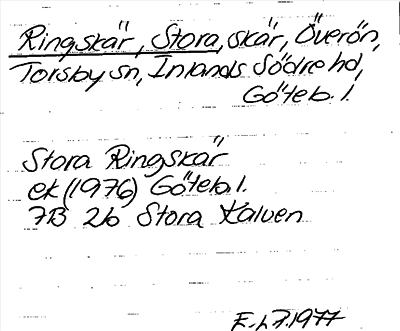 Ringskär, Stora, skär, Överön,
Torsby sn, Inlands Södre hd,
Göteb. l.
Stora Ringskär
ek (1976) Göteb. l.
7B 2b Stora Kalven
1977